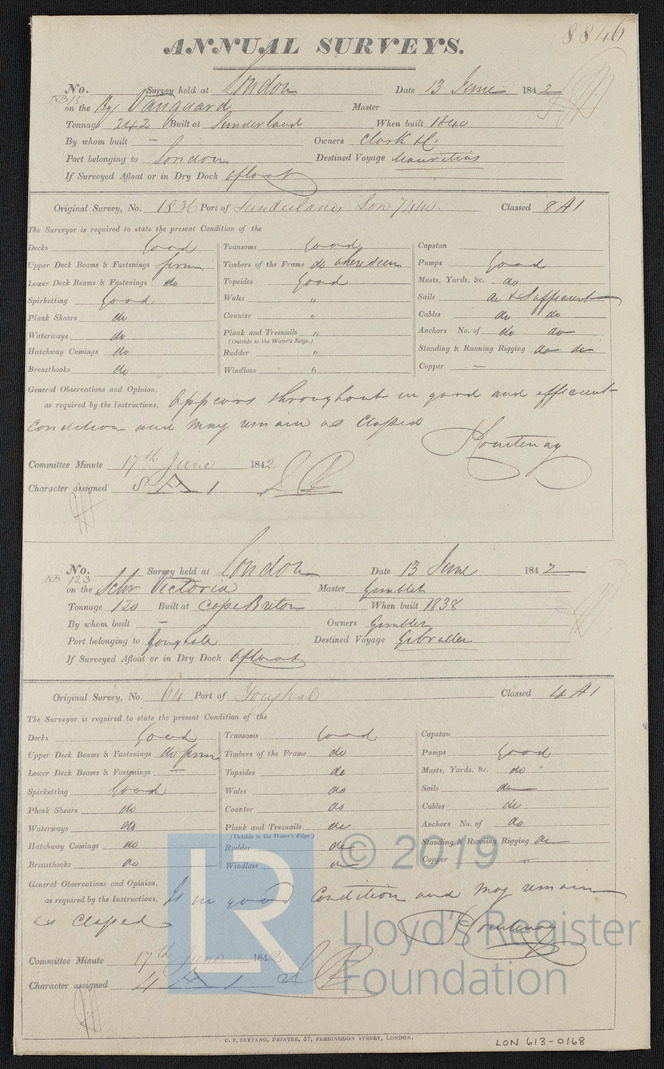 8846
ANNUAL SURVEYS.
No. Survey held at London Date 13 June 1842
on the Bg Vanguard Master
Tonnage 242 Built at Sunderland When built 1840
By whom built — Owners Clark &c.
Port belonging to London Destined Voyage Mauritius
If Surveyed Afloat or in Dry Dock Afloat
Original Survey, No. 1836 Port of Sunderland, Lon Classed 8 A1
The Surveyor is required to state the present Condition of the
Decks Good Transoms Good Capstan
Upper Deck Beams & Fastenings firm Timbers of the Frame do where seen Pumps Good
Lower Deck Beams & Fastenings do Topsides Good Masts, Yards, &c. do
Spirketting Good Wales " Sails do & Sufficient
Plank Shears do Counter " Cables do do
Waterways do Plank and Trenails " Anchors No. of do do
(Outside to the Water's Edge.)
Hatchway Comings do Rudder " Standing & Running Rigging do do
Breasthooks do Windlass " Copper —
General Observations and Opinion, as required by the Instructions, Appears throughout in good and efficient
condition and may remain as Classed
Courtenay
Committee Minute 17th June 1842
Character assigned 8 A 1
No. 123 Survey held at London Date 13 June 1842
on the Schr Victoria Master Gambler
Tonnage 120 Built at Cape Breton When built 1838
By whom built — Owners Gambler
Port belonging to Youghall Destined Voyage Gibralter
If Surveyed Afloat or in Dry Dock Afloat
Original Survey, No. 64 Port of Youghal Classed 4 A1
The Surveyor is required to state the present Condition of the
Decks Good Transoms Good Capstan
Upper Deck Beams & Fastenings do firm Timbers of the Frame do Pumps Good
Lower Deck Beams & Fastenings — Topsides do Masts, Yards, &c. do
Spirketting Good Wales do Sails do
Plank Shears do Counter do Cables do
Waterways do Plank and Trenails do Anchors No. of do
(Outside to the Water's Edge.)
Hatchway Comings do Rudder do Standing & Running Rigging do
Breasthooks do Windlass do Copper
General Observations and Opinion, as required by the Instructions, Is in good Condition and may remain
as Classed
Courtenay
Committee Minute 17th June 1842
Character assigned 4 A 1
C. F. SEYFANG, PRINTER, 57, FARRINGDON STREET, LONDON.
LON 613-0168
LR
© 2019
Lloyd's Register
Foundation